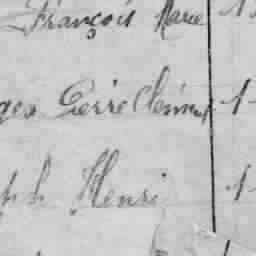 François Marie 1
ges Pierre Clément 1
ph Henri 1